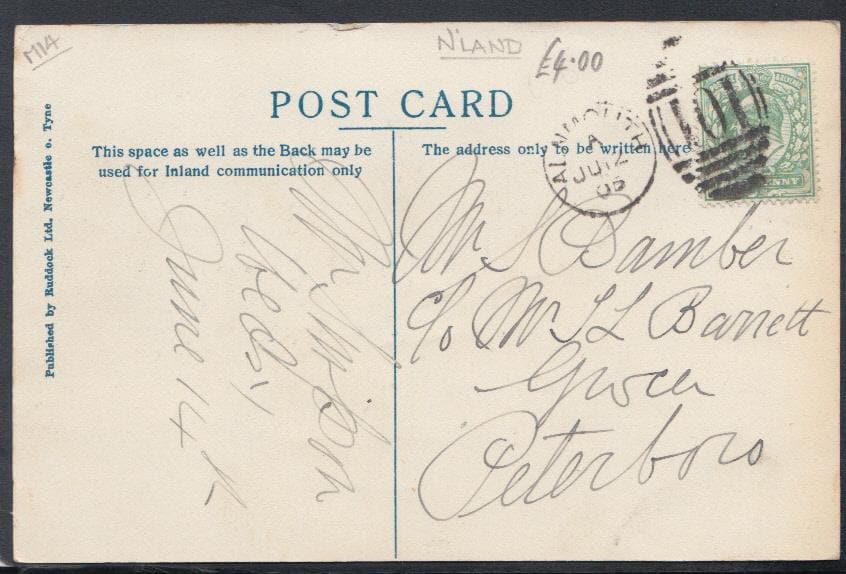 M14
N'LAND
£4.00
POST CARD
This space as well as the Back may be
used for Inland communication only
The address only to be written here
Published by Ruddock Ltd. Newcastle o. Tyne
ALNMOUTH
A
JU 12
05
107
NNY
Mr S Bamber
c/o Mr T L Barrett
Grocer
Peterboro
Mr
Wed
June 14th